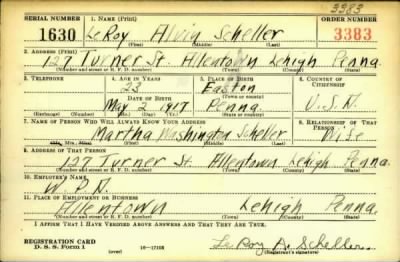 3383
SERIAL NUMBER 1. NAME (Print) ORDER NUMBER
1630 LeRoy Alvin Scheller 3383
(First) (Middle) (Last)
2. ADDRESS (Print)
127 Turner St. Allentown Lehigh Penna.
(Number and street or R. F. D. number) (Town) (County) (State)
3. TELEPHONE 4. AGE IN YEARS 5. PLACE OF BIRTH 6. COUNTRY OF CITIZENSHIP
23 Easton
DATE OF BIRTH (Town or county)
May 2 1917 Penna. U.S.A.
(Exchange) (No.) (Mo.) (Day) (Yr.) (State or country)
7. NAME OF PERSON WHO WILL ALWAYS KNOW YOUR ADDRESS 8. RELATIONSHIP OF THAT PERSON
Martha Washington Scheller Wife
(Mr., Mrs., Miss) (First) (Middle) (Last)
9. ADDRESS OF THAT PERSON
127 Turner St. Allentown Lehigh Penna.
(Number and street or R. F. D. number) (Town) (County) (State)
10. EMPLOYER'S NAME
W. P. A.
11. PLACE OF EMPLOYMENT OR BUSINESS
Allentown Lehigh Penna.
(Number and street or R. F. D. number) (Town) (County) (State)
I AFFIRM THAT I HAVE VERIFIED ABOVE ANSWERS AND THAT THEY ARE TRUE.
REGISTRATION CARD
D. S. S. Form 1 (over) 16—17105 LeRoy A. Scheller
(Registrant's signature)